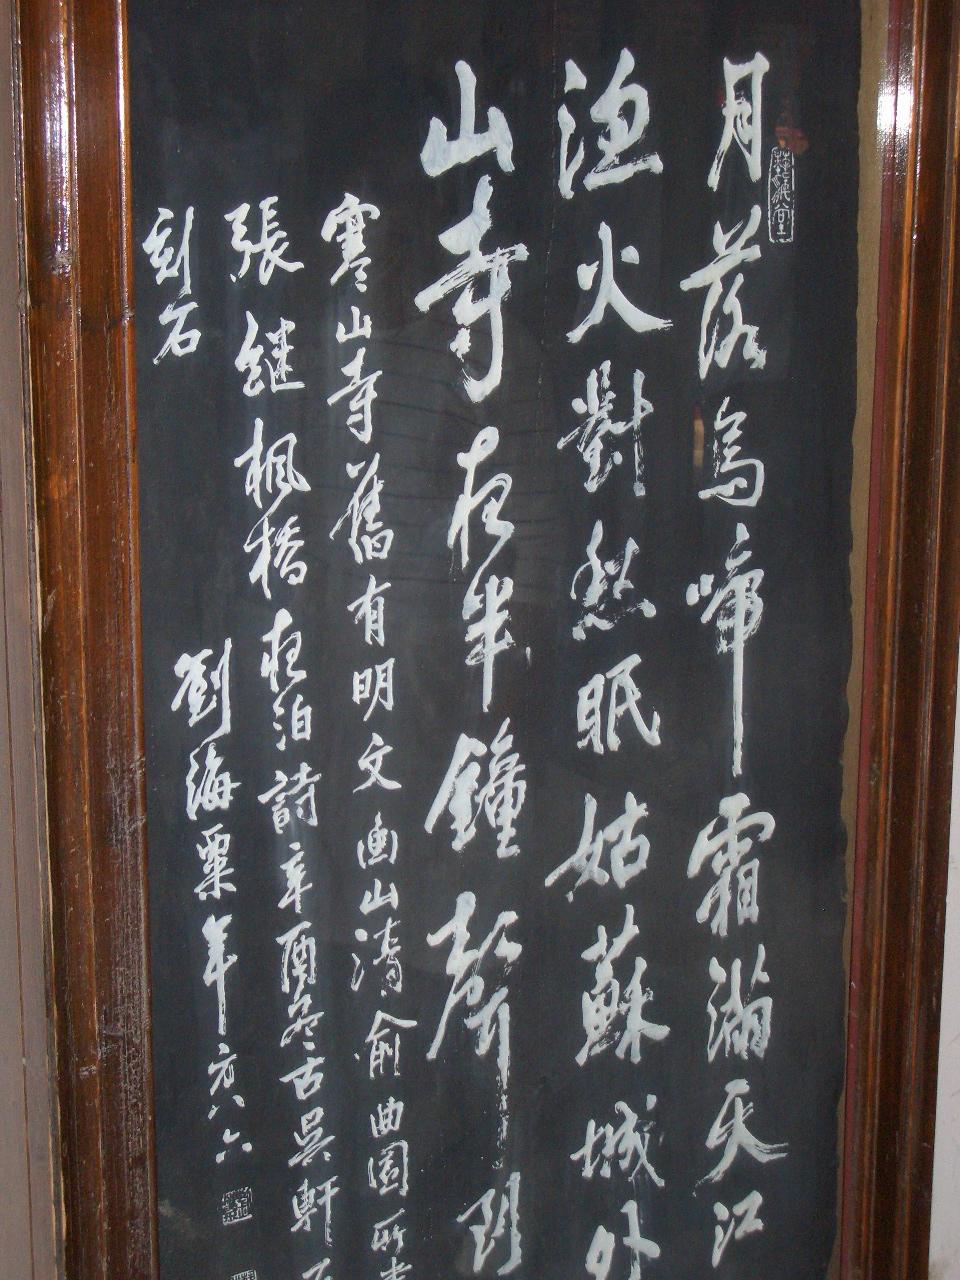 月落烏啼霜滿天江
渔火對愁眠姑蘇城外
山寺夜半鐘聲到
寒山寺舊有明文衡山清俞曲園所書
張继楓橋夜泊詩辛酉冬古吳軒
刻石
劉海粟年方八六